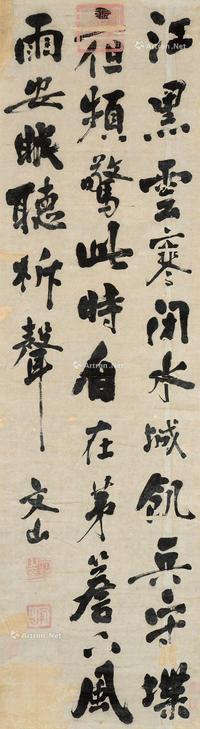 江黑雲寒閉水城飢兵守堞
但頻驚此時自在茅簷下風
雨安眠聽柝聲
文山
Artron.Net